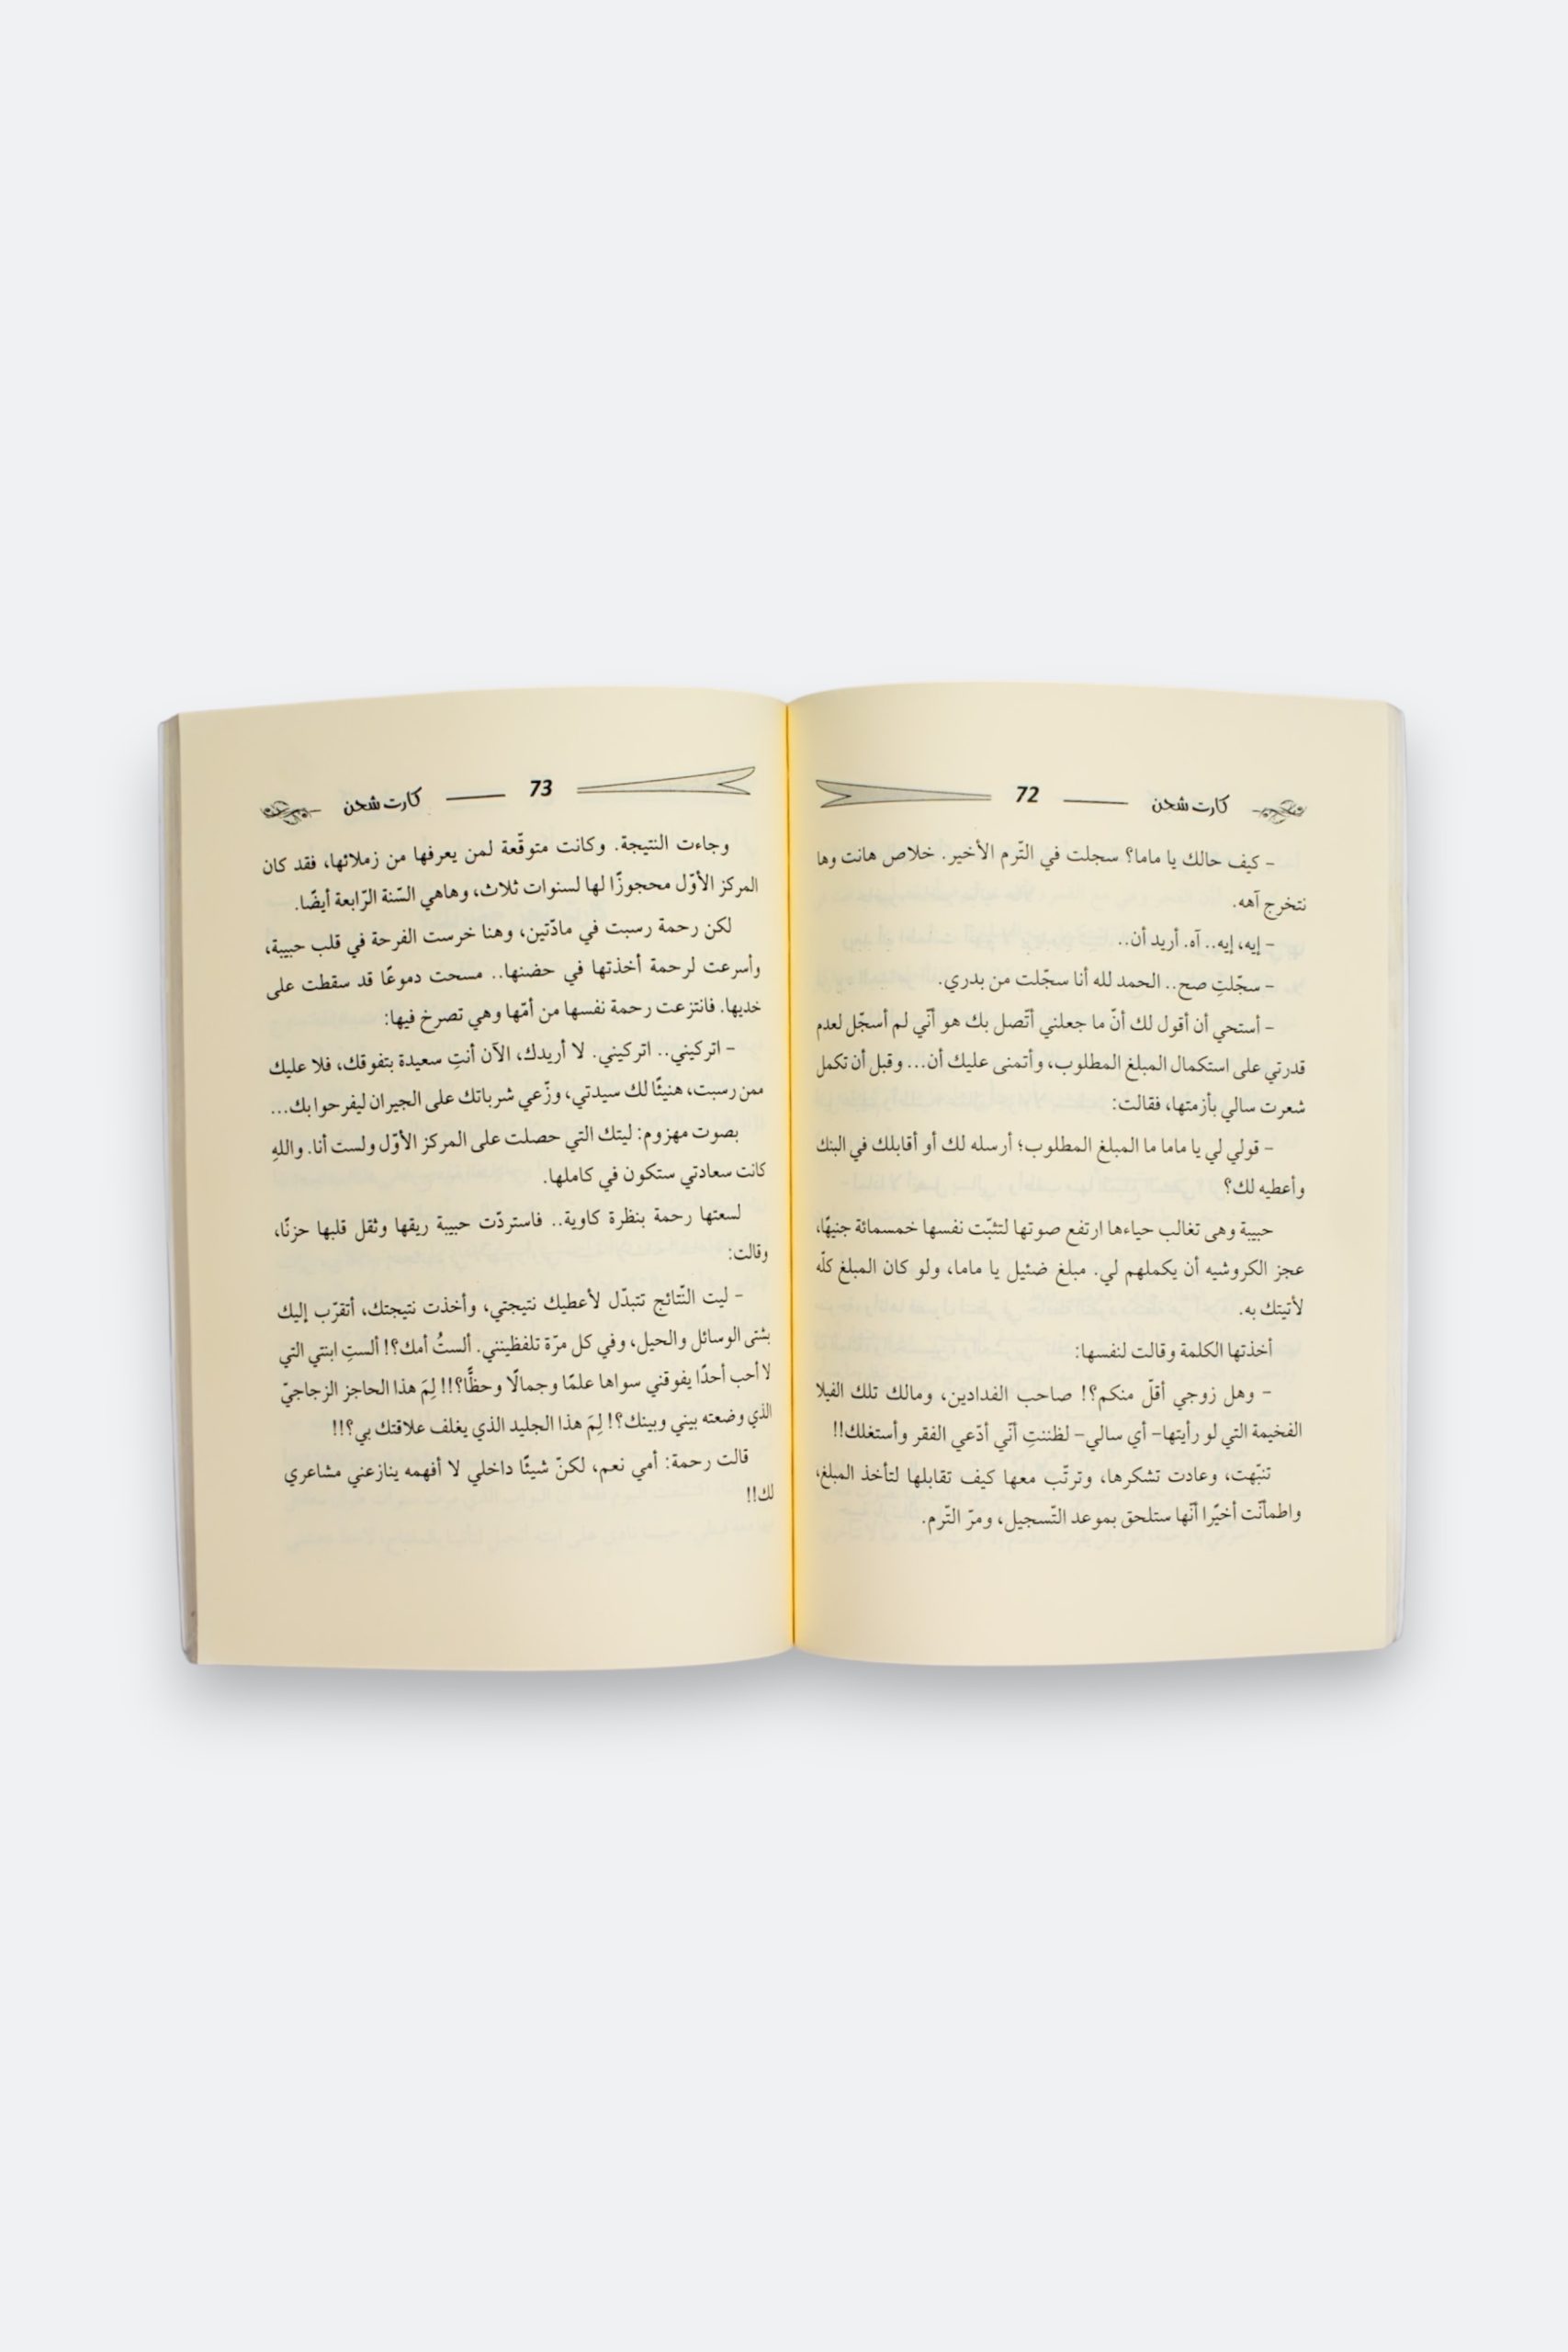 كارت شحن 72
- كيف حالك يا ماما؟ سجلت في التّرم الأخير. خلاص هانت وها
نتخرج آهه.
- إيه، إيه.. آه. أريد أن..
- سجّلتِ صح.. الحمد لله أنا سجّلت من بدري.
- أستحي أن أقول لك أنّ ما جعلني أتّصل بك هو أنّي لم أسجّل لعدم
قدرتي على استكمال المبلغ المطلوب، وأتمنى عليك أن... وقبل أن تكمل
شعرت سالي بأزمتها، فقالت:
- قولي لي يا ماما ما المبلغ المطلوب؛ أرسله لك أو أقابلك في البنك
وأعطيه لك؟
حبيبة وهى تغالب حياءها ارتفع صوتها لتثبّت نفسها خمسمائة جنيهًا،
عجز الكروشيه أن يكملهم لي. مبلغ ضئيل يا ماما، ولو كان المبلغ كلّه
لأتيتك به.
أخذتها الكلمة وقالت لنفسها:
- وهل زوجي أقلّ منكم؟! صاحب الفدادين، ومالك تلك الفيلا
الفخيمة التي لو رأيتها- أي سالي- لظننتِ أنّي أدّعي الفقر وأستغلك!!
تنبّهت، وعادت تشكرها، وترتّب معها كيف تقابلها لتأخذ المبلغ،
واطمأنّت أخيّرا أنّها ستلحق بموعد التّسجيل، ومرّ التّرم.
73 كارت شحن
وجاءت النتيجة. وكانت متوقّعة لمن يعرفها من زملائها، فقد كان
المركز الأوّل محجوزًا لها لسنوات ثلاث، وهاهي السّنة الرّابعة أيضًا.
لكن رحمة رسبت في مادّتين، وهنا خرست الفرحة في قلب حبيبة،
وأسرعت لرحمة أخذتها في حضنها.. مسحت دموعًا قد سقطت على
خديها. فانتزعت رحمة نفسها من أمّها وهي تصرخ فيها:
- اتركيني.. اتركيني. لا أريدك، الآن أنتِ سعيدة بتفوقك، فلا عليك
ممن رسبت، هنيئًا لك سيدتي، وزّعي شرباتك على الجيران ليفرحوا بك...
بصوت مهزوم: ليتك التي حصلت على المركز الأوّل ولست أنا. واللهِ
كانت سعادتي ستكون في كاملها.
لسعتها رحمة بنظرة كاوية.. فاستردّت حبيبة ريقها وثقل قلبها حزنًا،
وقالت:
- ليت النّتائج تتبدّل لأعطيك نتيجتي، وأخذت نتيجتك، أتقرّب إليك
بشتى الوسائل والحيل، وفي كل مرّة تلفظينني. ألستُ أمك؟! ألستِ ابنتي التي
لا أحب أحدًا يفوقني سواها علمًا وجمالًا وحظًّا؟!! لِمَ هذا الحاجز الزجاجيّ
الذي وضعته بيني وبينك؟! لِمَ هذا الجليد الذي يغلف علاقتك بي؟!!
قالت رحمة: أمي نعم، لكنّ شيئًا داخلي لا أفهمه ينازعني مشاعري
لك!!